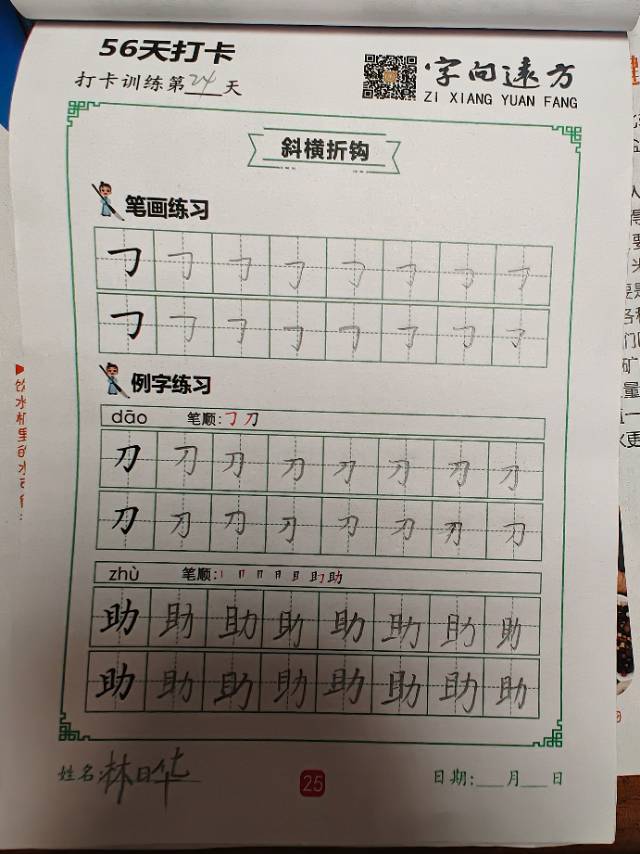 56天打卡
打卡训练第24天
字向遠方
ZI XIANG YUAN FANG
斜横折钩
笔画练习
㇆ ㇆ ㇆ ㇆ ㇆ ㇆ ㇆ ㇆
㇆ ㇆ ㇆ ㇆ ㇆ ㇆ ㇆ ㇆
例字练习
dāo 笔顺:㇆刀
刀 刀 刀 刀 刀 刀 刀 刀
刀 刀 刀 刀 刀 刀 刀 刀
zhù 笔顺:丨 冂 月 目 且 助 助
助 助 助 助 助 助 助 助
助 助 助 助 助 助 助 助
姓名:林日华
25
日期:___月___日
饮水机里的水